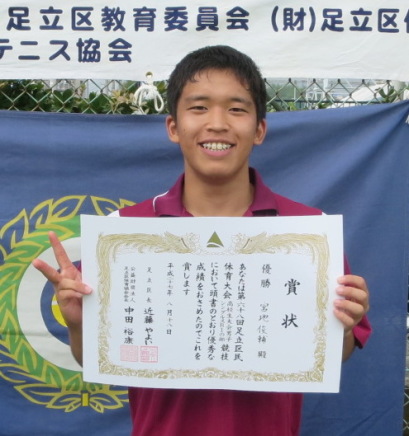 足立区教育委員会 (財)足立区体
テニス協会
賞状
優勝 冨地俊輔 殿
あなたは第六十八回足立区民
体育大会 競技
において頭書のとおり優秀な
成績をおさめたのでこれを
賞します
平成二十七年八月十八日
足立区長 近藤やよい
中田裕康